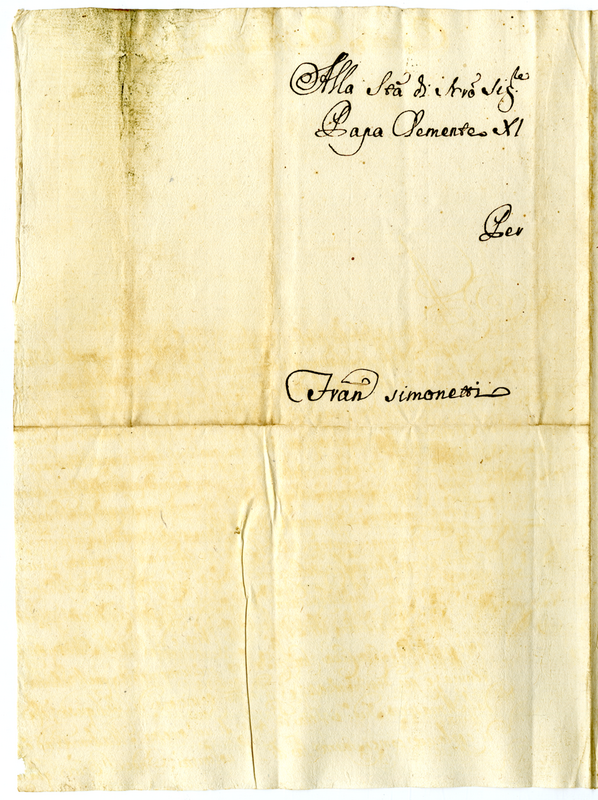 Alla Stà di Nrõ Sigle
Papa Clemente XI
Per
Fran simonetti